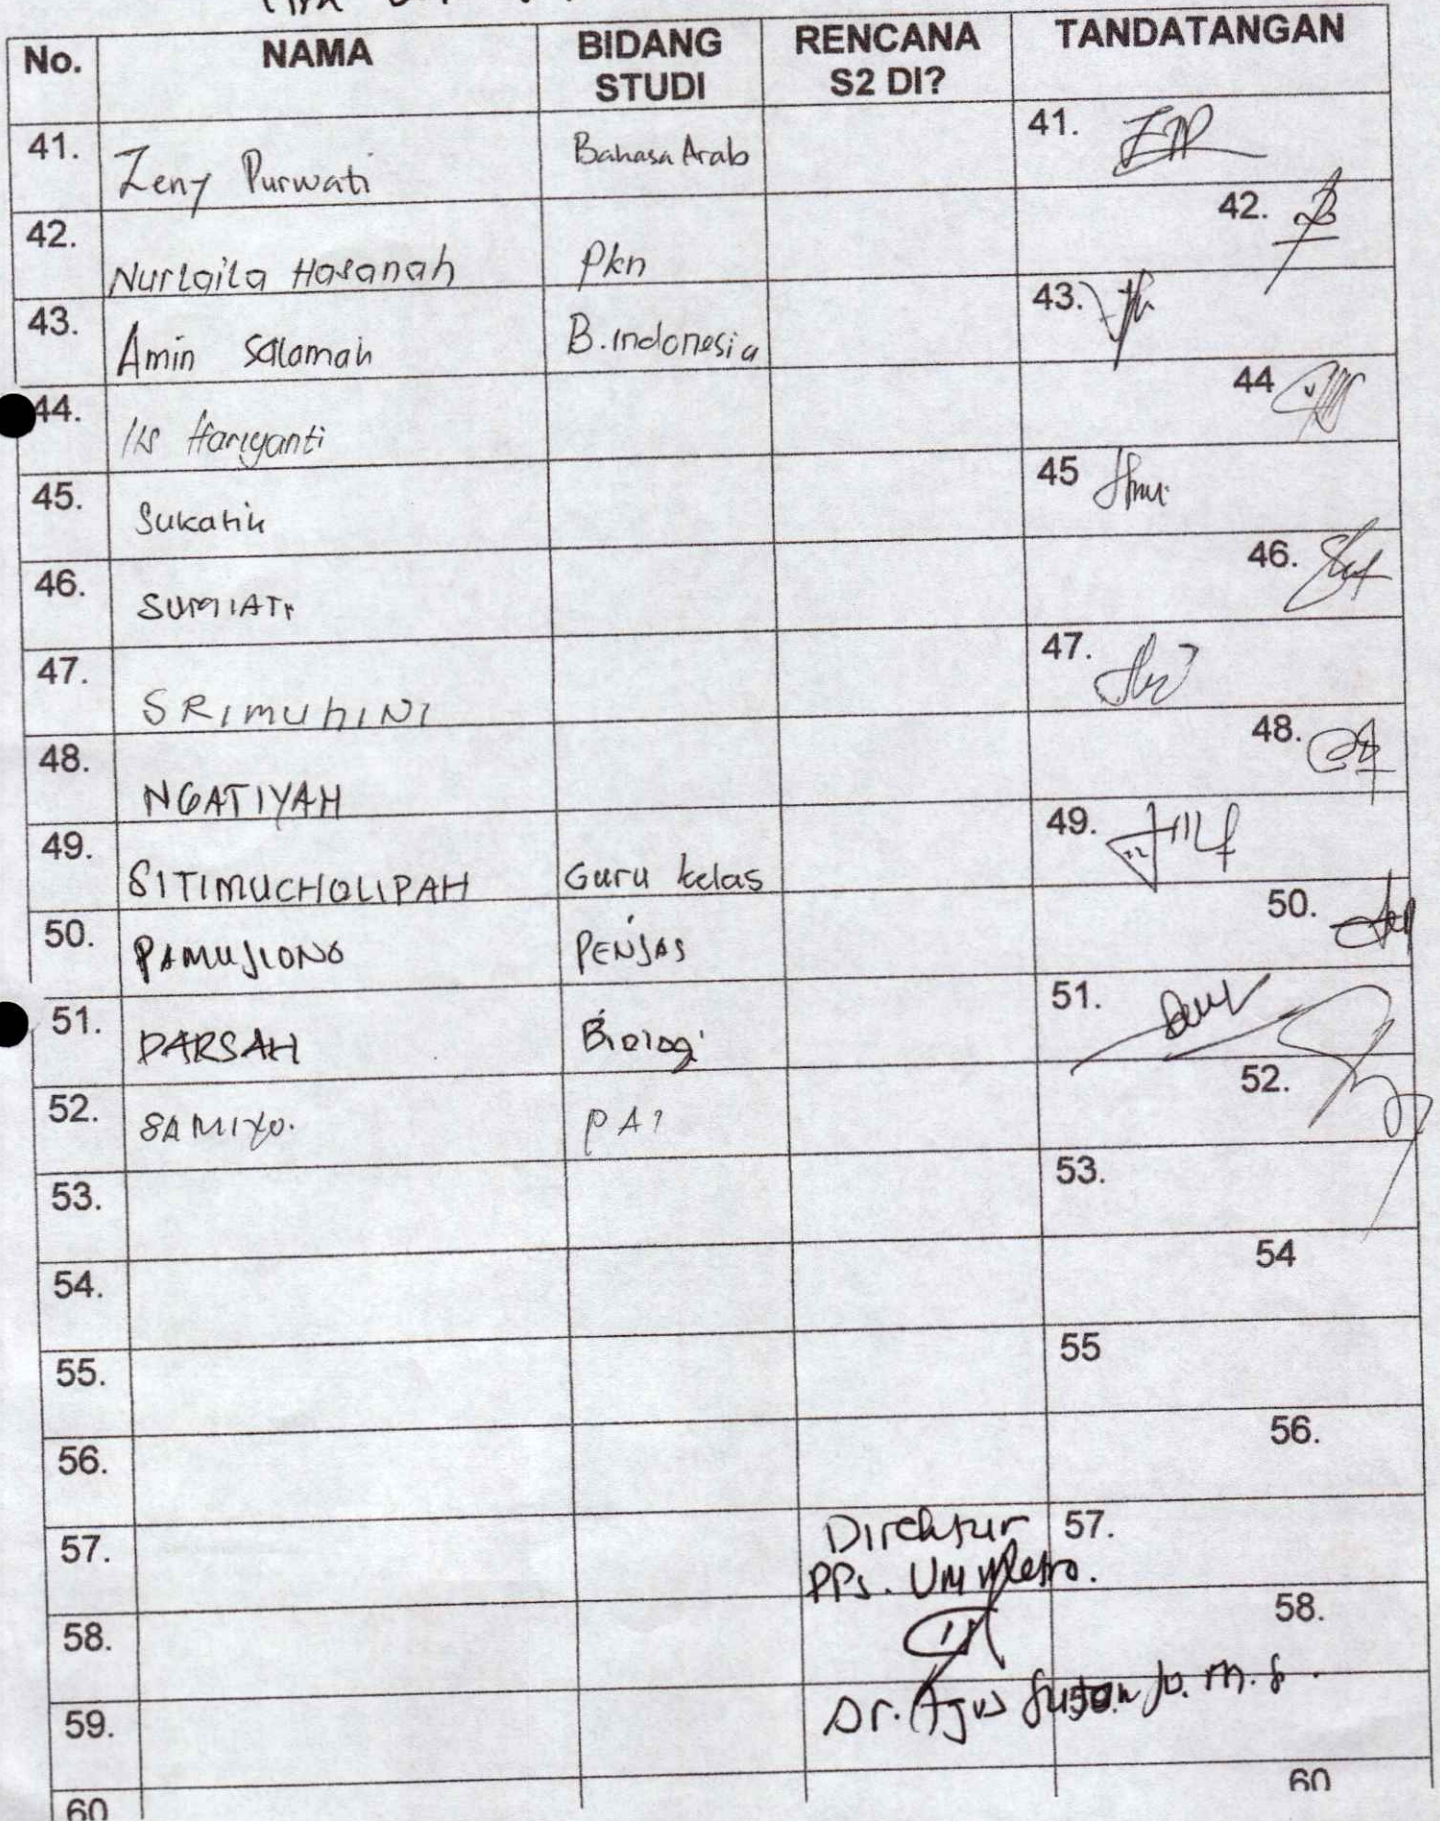 No. NAMA BIDANG STUDI RENCANA S2 DI? TANDATANGAN
41. Zeny Purwati Bahasa Arab 41.
42. Nurlaila Hasanah Pkn 42.
43. Amin Salamah B. Indonesia 43.
44. Iis Hariyanti 44
45. Sukatin 45
46. SUMIATI 46.
47. SRIMUHINI 47.
48. NGATIYAH 48.
49. SITIMUCHOLIPAH Guru kelas 49.
50. PAMUJIONO PENJAS 50.
51. DARSAH Biologi 51.
52. SAMIYO. PAI 52.
53. 53.
54. 54
55. 55
56. 56.
57. Direktur 57.
PPs. UM Metro.
58. 58.
59. Dr. Agus Sutanjo. M.S.
60 60